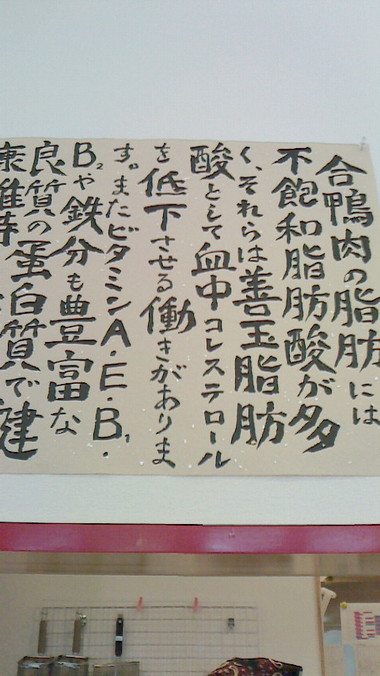 合鴨肉の脂肪には
不飽和脂肪酸が多
く、それらは善玉脂肪
酸として血中コレステロール
を低下させる働きがありま
す。またビタミンA・E・B₁・
B₂や鉄分も豊富な
良質の蛋白質で健
康維持